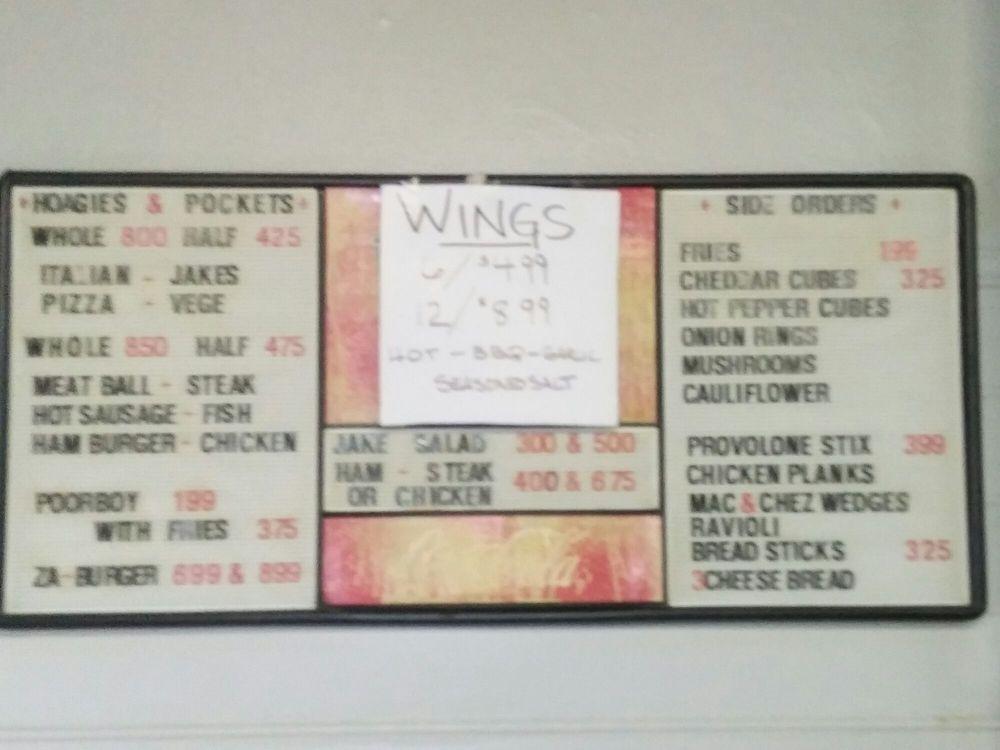 HOAGIES & POCKETS
WHOLE 800 HALF 425
ITALIAN - JAKES
PIZZA - VEGE
WHOLE 850 HALF 475
MEAT BALL - STEAK
HOT SAUSAGE - FISH
HAM BURGER - CHICKEN
POORBOY 199
WITH FRIES 375
ZA-BURGER 699 & 899
WINGS
6/$4.99
12/$8.99
HOT - BBQ - GARLIC
SEASONED SALT
JAKE SALAD 300 & 500
HAM - STEAK
OR CHICKEN 400 & 675
Coca-Cola
SIDE ORDERS
FRIES 199
CHEDDAR CUBES 325
HOT PEPPER CUBES
ONION RINGS
MUSHROOMS
CAULIFLOWER
PROVOLONE STIX 399
CHICKEN PLANKS
MAC & CHEZ WEDGES
RAVIOLI
BREAD STICKS 325
3CHEESE BREAD